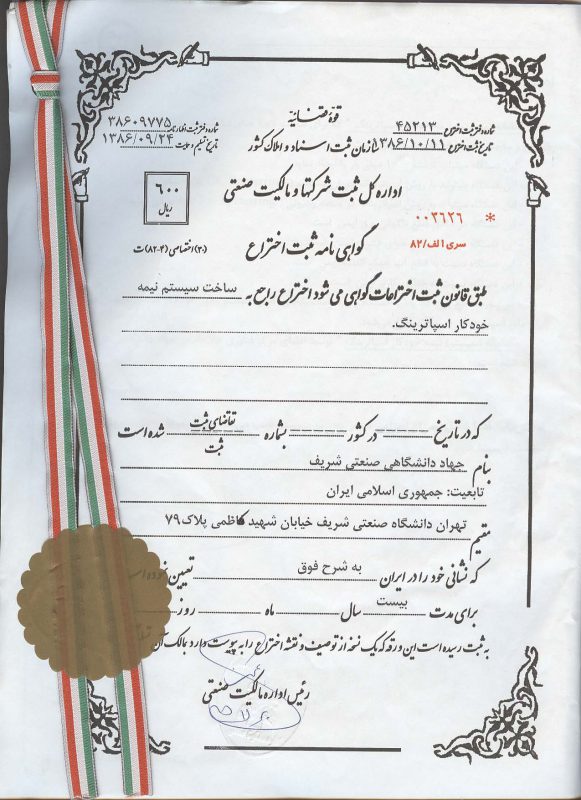 قوهٔ قضائیه
شماره دفتر ثبت اختراع ۴۵۲۱۳
شماره دفتر ثبت اظهارنامه ۳۸۶۰۹۷۷۵
سازمان ثبت اسناد و املاک کشور
تاریخ ثبت اختراع ۱۳۸۶/۱۰/۱۱
تاریخ تسلیم و ساعت ۱۳۸۶/۰۹/۲۴
اداره کل ثبت شرکتها و مالکیت صنعتی
۶۰۰
ریال
* ۰۰۳۶۲۶
سری الف/۸۲
گواهی نامه ثبت اختراع
(۳۰) اختصاصی (۴-۸۲) ت
طبق قانون ثبت اختراعات گواهی می شود اختراع راجع به ساخت سیستم نیمه
خودکار اسپاترینگ.
که در تاریخ ------ در کشور ------ بشماره ------ تقاضای ثبت شده است
ثبت
بنام جهاد دانشگاهی صنعتی شریف
تابعیت: جمهوری اسلامی ایران
مقیم تهران دانشگاه صنعتی شریف خیابان شهید کاظمی پلاک ۷۹
که نشانی خود را در ایران به شرح فوق تعیین نموده
برای مدت بیست سال ماه روز
به ثبت رسیده است این ورقه که یک نسخه از توصیف و نقشه اختراع را به پیوست دارد بمالک آن
رئیس اداره مالکیت صنعتی